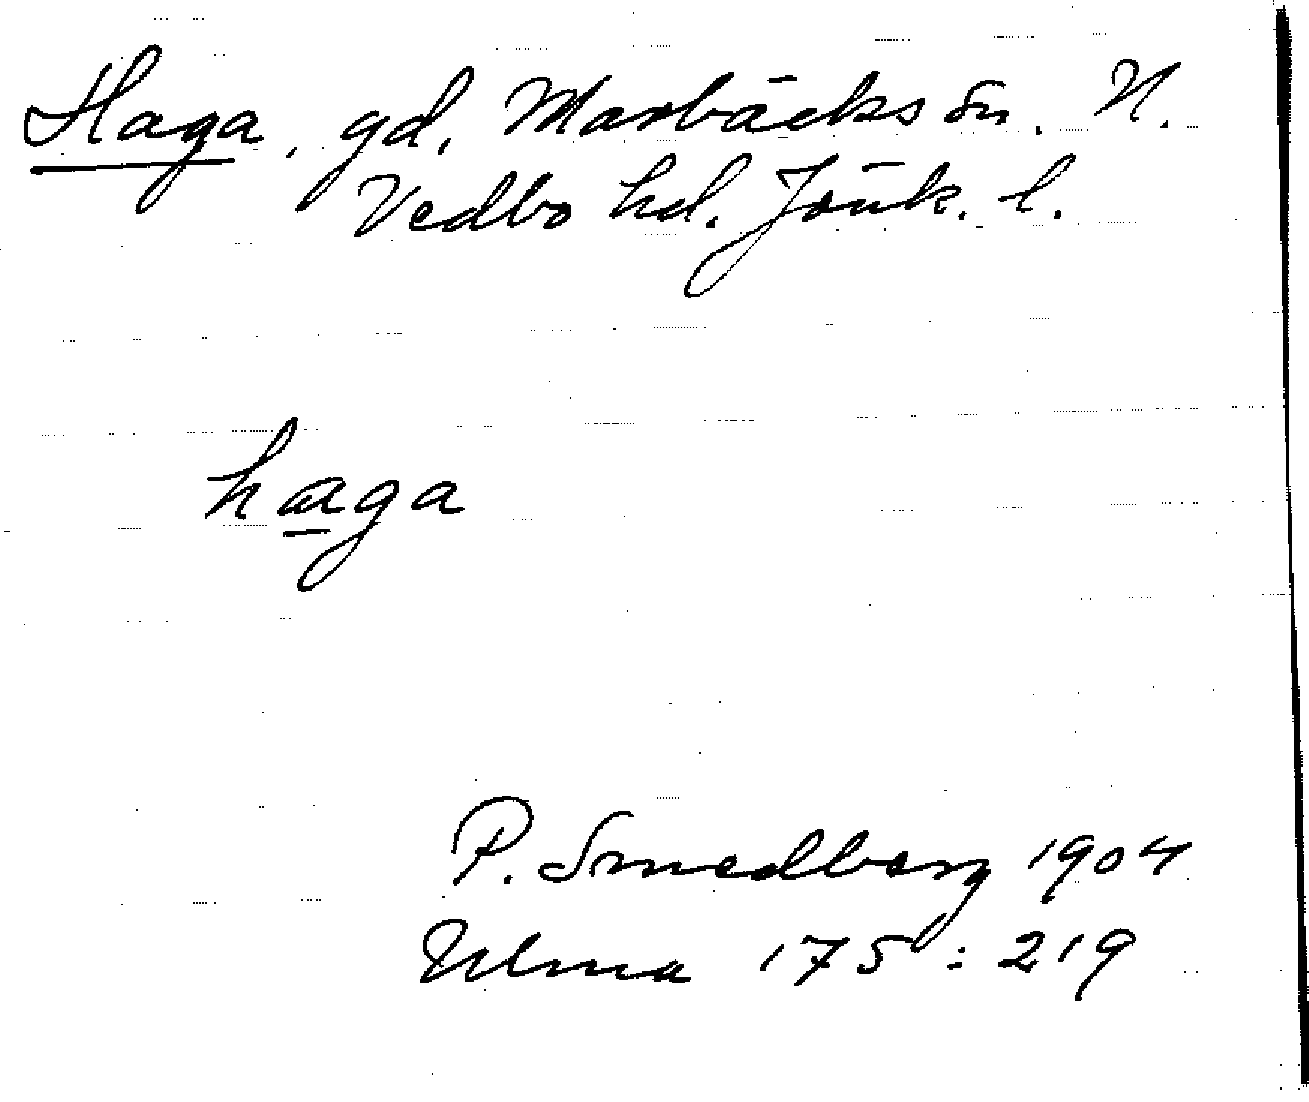 Haga, gd, Marbäcks sn. N.
Vedbo hd. Jönk. l.
haga
P. Smedberg 1904
Ulma 175:219